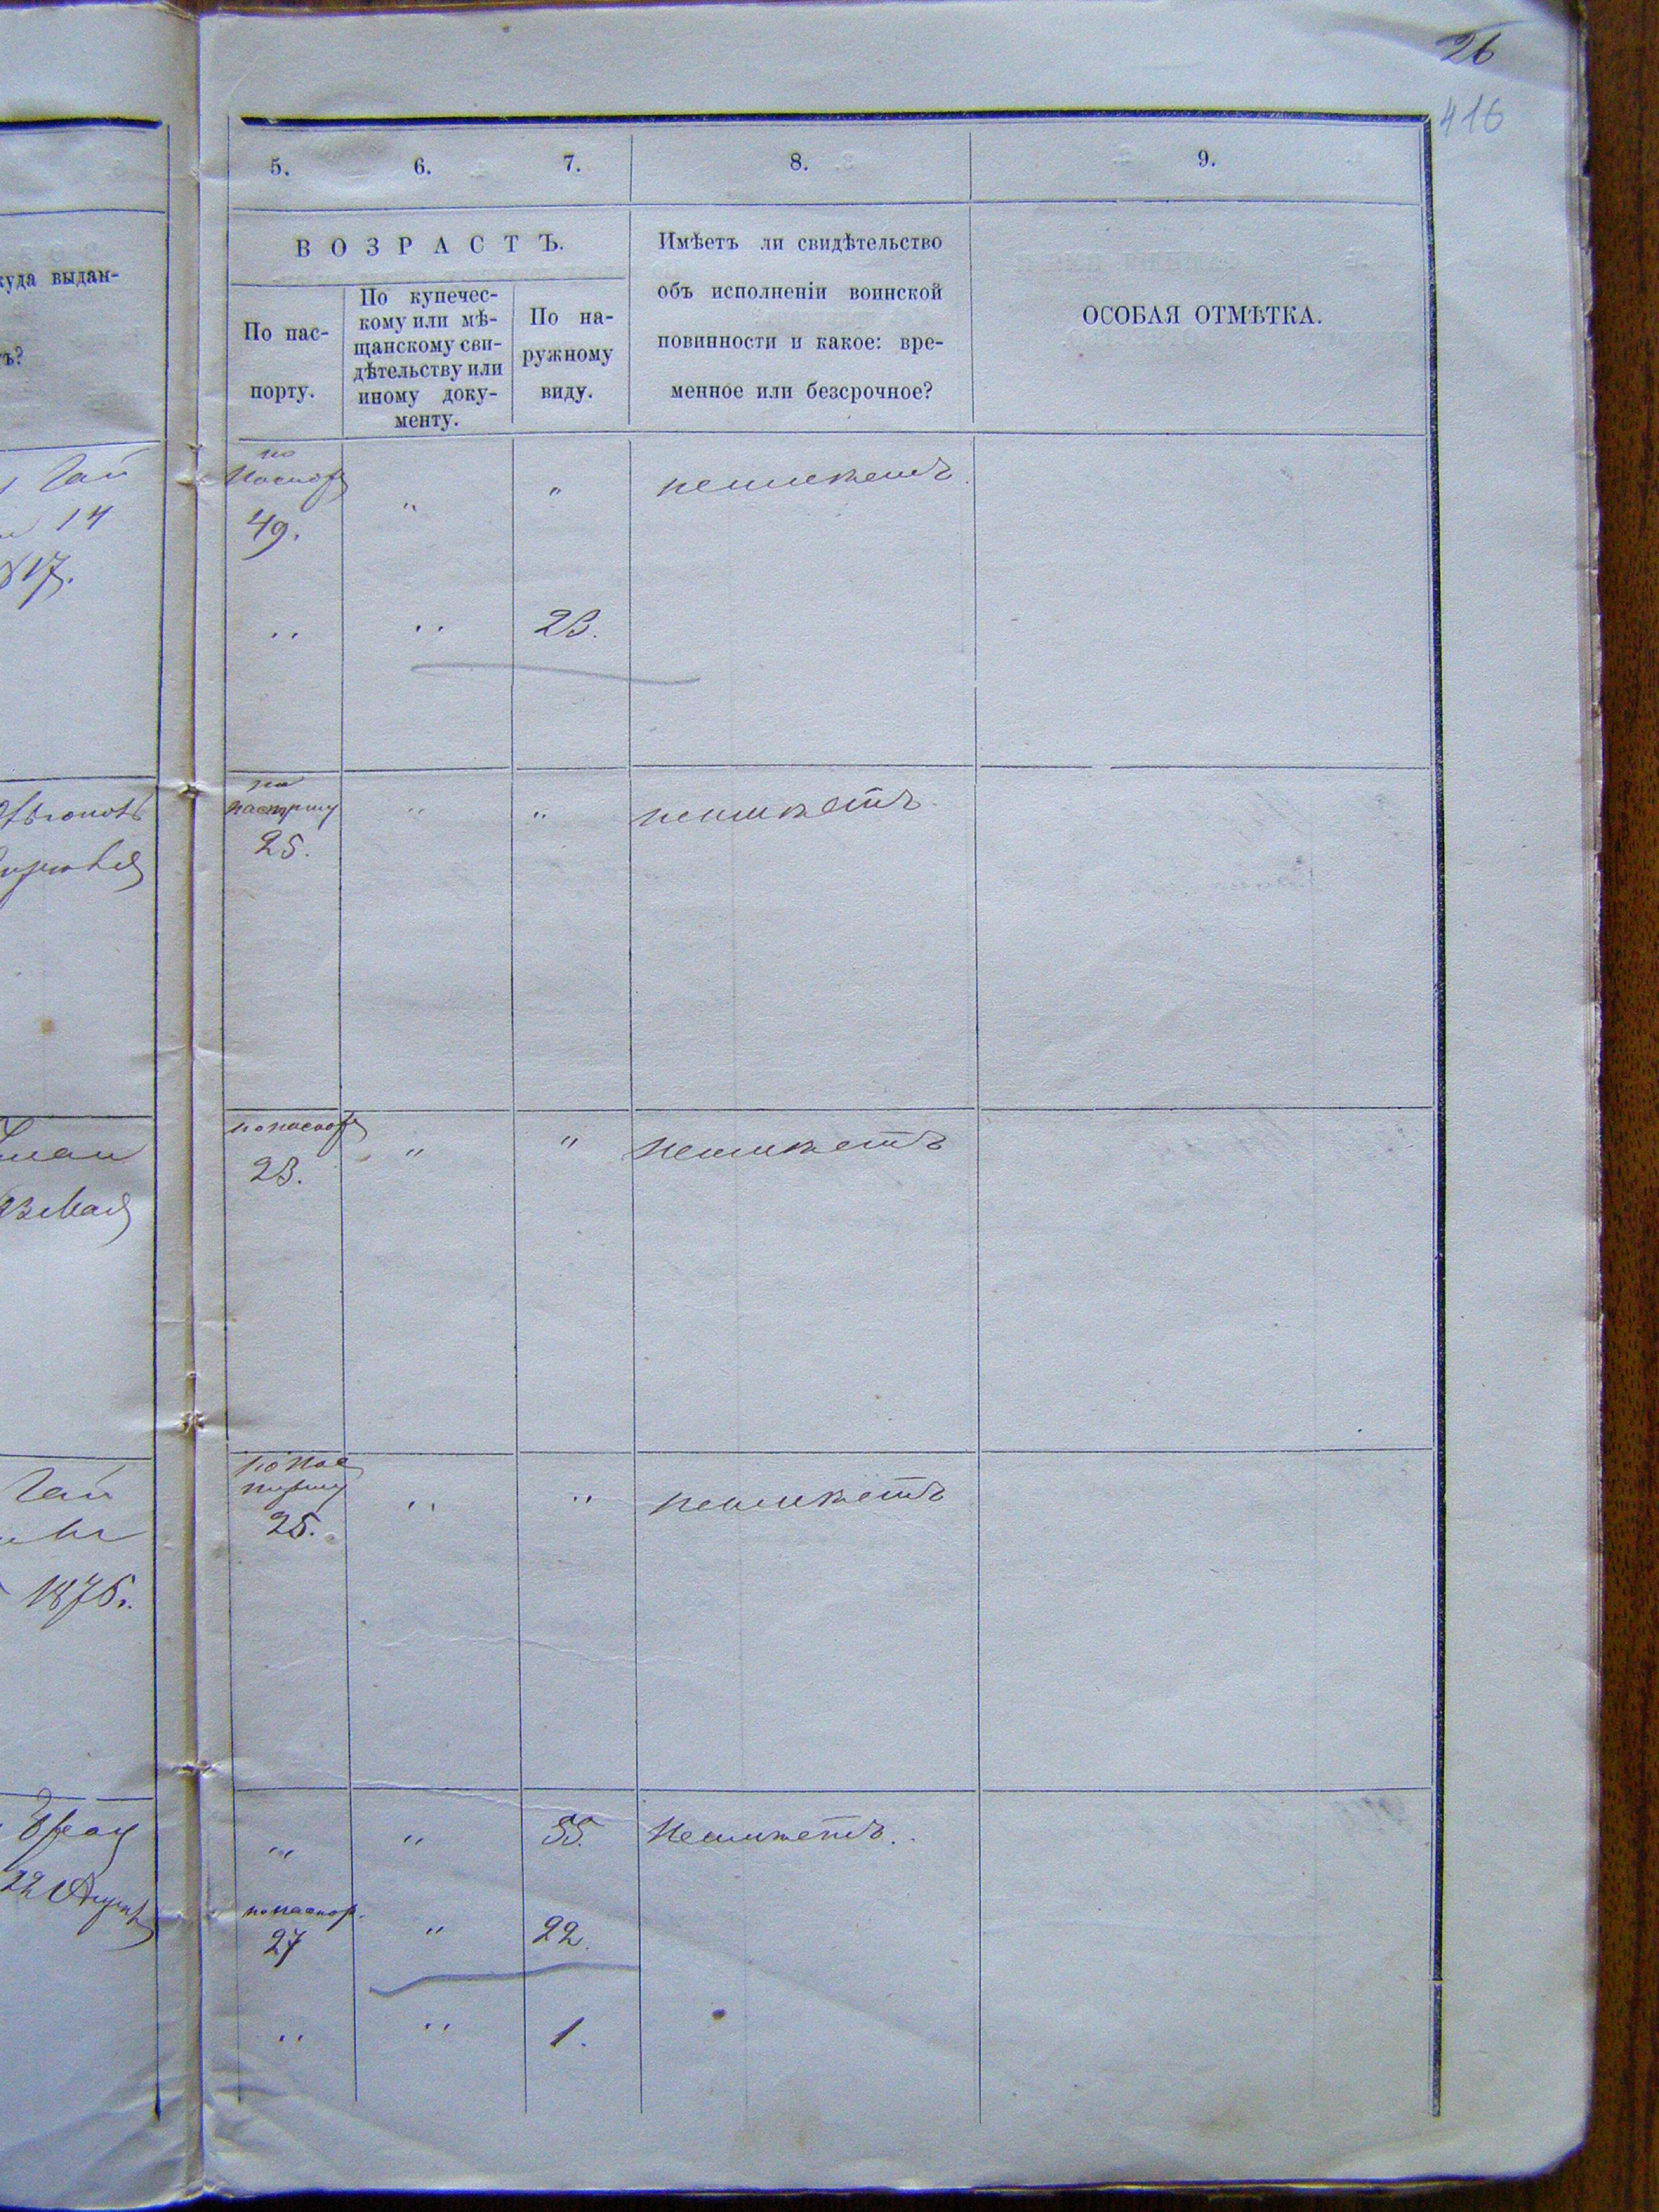 26
416
5. 6. 7. 8. 9.
ВОЗРАСТЪ.
По пас-
порту.
По купечес-
кому или мѣ-
щанскому сви-
дѣтельству или
иному доку-
менту.
По на-
ружному
виду.
Имѣетъ ли свидѣтельство
объ исполненіи воинской
повинности и какое: вре-
менное или безсрочное?
ОСОБАЯ ОТМѢТКА.
куда выдан-
ъ?
14
17.
по
паспор
49. " " неимѣетъ.
" " 23.
по
паспорту
25. " " неимѣетъ.
по паспор
23. " " неимѣетъ
Мая
по пас
порту
25. " " неимѣетъ
1876.
" " 55. Неимѣетъ.
22
по паспор.
27 " 22.
" " 1.